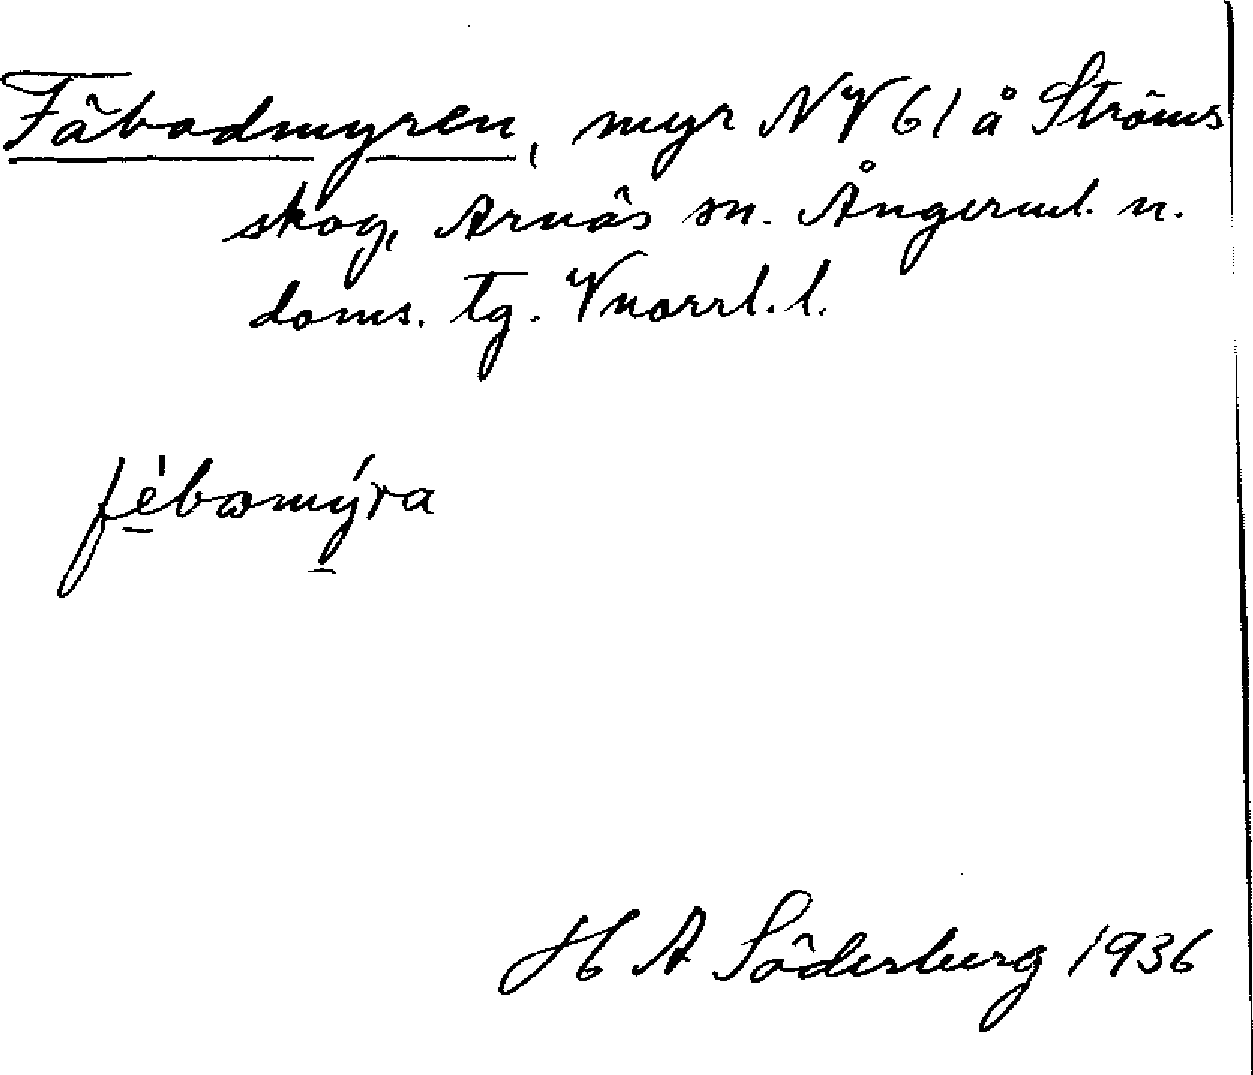 Fäbodmyren, myr NV 61 å Ströms
skog, Arnäs sn. Ångerml. n.
doms. tg. Vnorrl. l.
fèbɷmýra
H A Söderberg 1936